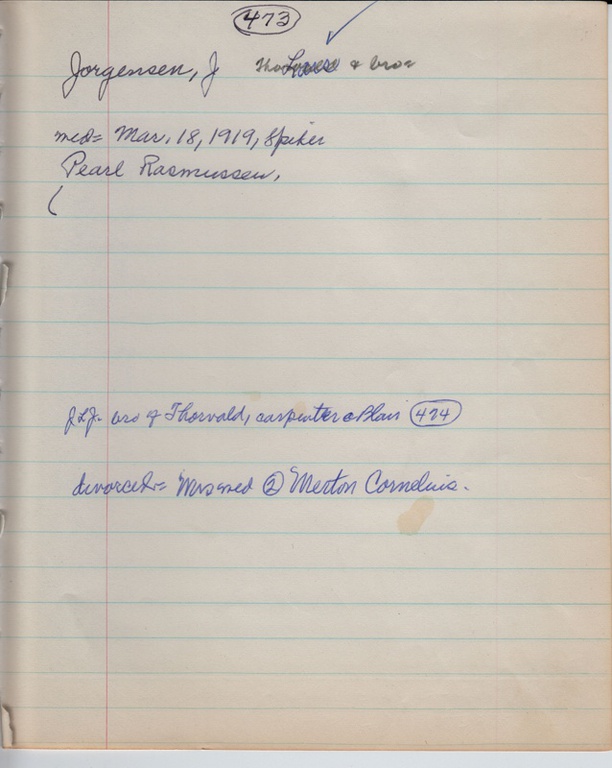 473
Jorgensen, J & bro
med= Mar. 18, 1919, Spiker
Pearl Rasmussen,
(
J.L.J. bro of Thorvald, carpenter @ Blair 474
divorced= Mrs med ② Merton Cornelius.